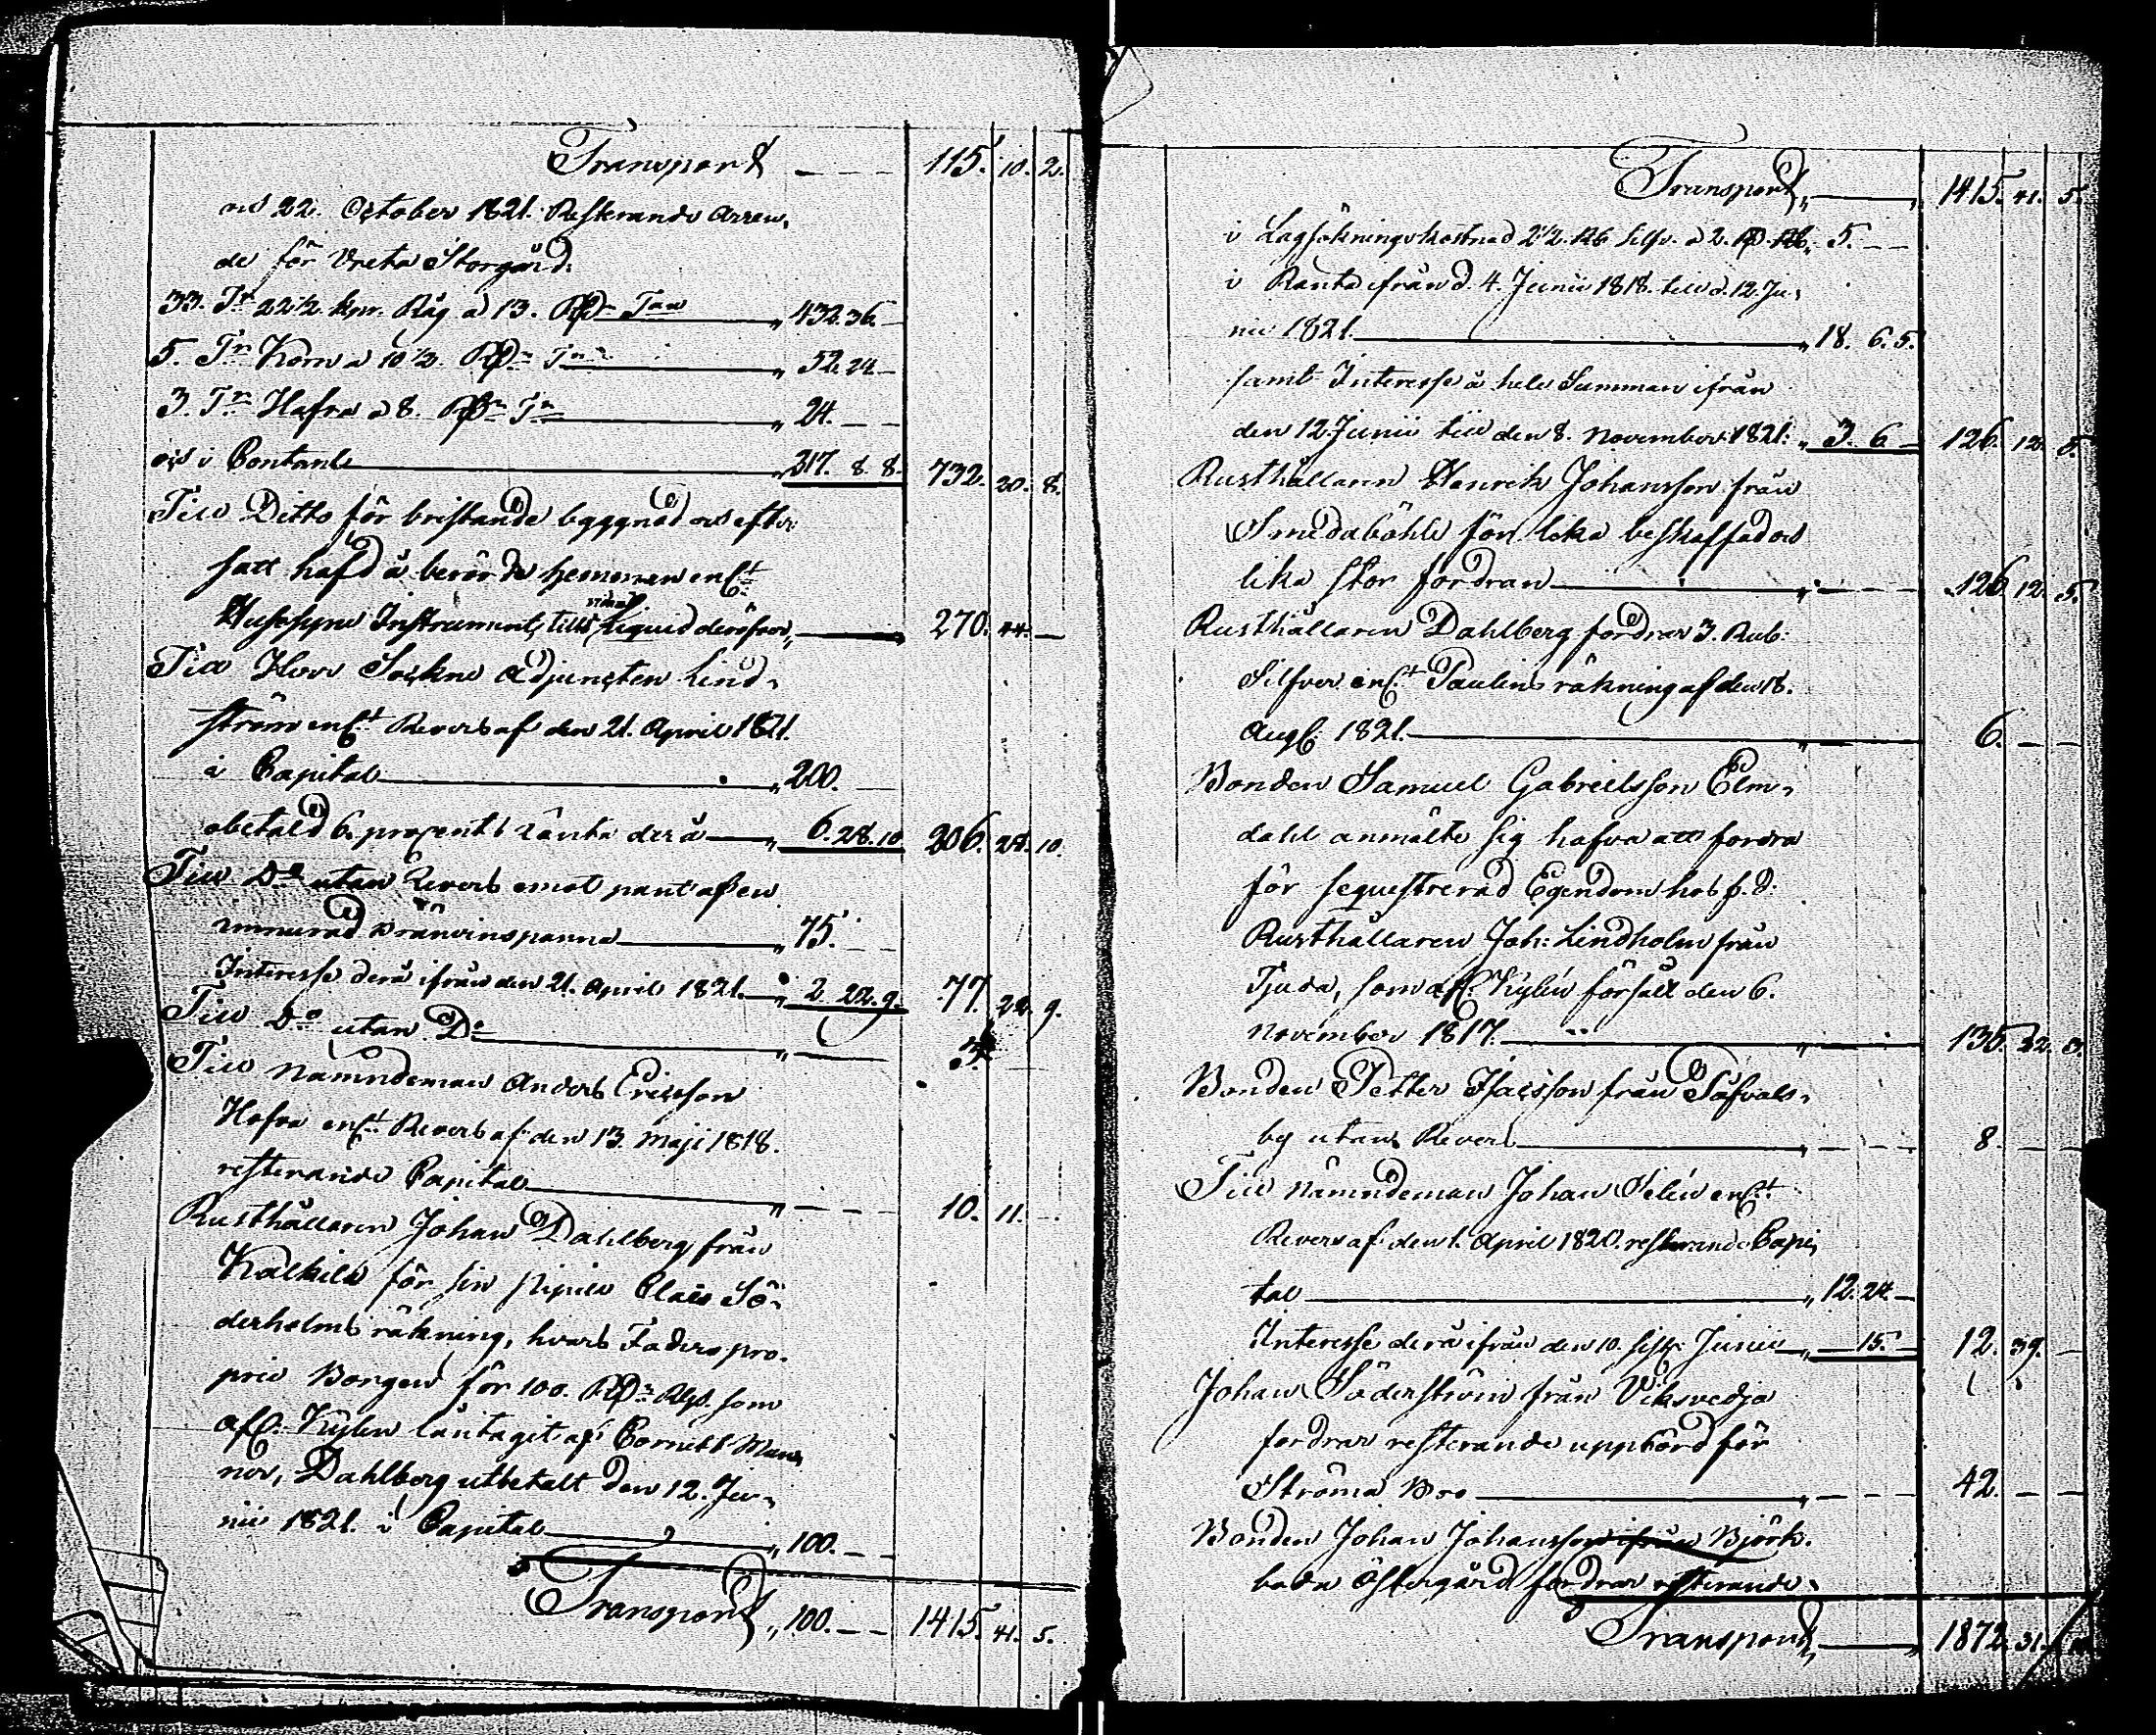 Transport 115. 10. 2.
och 22. October 1821. Resterande Arren-
de för Vreta Storgård.
33. Tr 22 1/2. kpr. Råg a 13. Rdr Tun „ 432. 36. —
5. Tn Korn a 10 1/2. Rdr Tn „ 52. 24. —
3. Tn Hafra a 8. Rdr Tn „ 24. — —
och i Contant „ 317. 8. 8. 732. 20. 8.
Till Ditto för bristande byggnad och efter-
satt häfd å berörde hemman enl.t
Husesyns Instrument, tills vidare Liquid deröfver „ 270. 44. —
Till Herr Sockne Adjuncten Lind-
ström enl.t Revers af den 21. April 1821.
i Capital „ 200. —
obetald 6. procents ränta derå „ 6. 28. 10. 206. 28. 10.
Till D:o utan Revers emot pant af en
inmurad Bränvinspanna „ 75. — —
Interesse derå ifrån den 21. April 1821. „ 2. 22. 9. 77. 22. 9.
Till D:o utan D:o „ — 3.
Till Nämndeman Anders Ericsson
Hofra enl.t Revers af den 13. Maji 1818.
resterande Capital „ — 10. 11. —
Rusthållaren Johan Dahlberg från
Kalkila för sin Pupill Claes Sö-
derholms räkning, hvars Faders pro-
prie Borgen för 100. Rdr Rgs. som
afl. Kylen låntagit af Cornett Man-
ner, Dahlberg utbetalt den 12. Ju-
nii 1821. i Capital „ 100. — —
Transport „ 100. — — 1415. 41. 5.
Transport „ — „ 1415. 41. 5.
i Lagsökningskostnad 2 1/2. Rub. Silfv. a 2. Rd „ 5. — —
i Ranta ifrån d. 4. Junii 1818. till d. 12. Ju-
nii 1821. „ 18. 6. 5.
samt Interesse å hela Summan ifrån
den 12. Junii till den 8. November 1821. „ 3. 6 — 126. 12. 5.
Rusthållaren Henrik Johansson från
Smedaböhle för lika beskaffad och
lika stor fordran „ — 126. 12. 5.
Rusthållaren Dahlberg fordrar 3. Rub:
Silfver enl.t Paulins räkning af den 18.
Augl. 1821. „ — 6. — —
Bonden Samuel Gabrielsson Elm-
dahl anmälte sig hafva att fordra
för sequestrerad Egendom hos f. d.
Rusthållaren Joh: Lindholm från
Tjuda, som afl. Kylén försålt den 6.
November 1817. „ — 135. 32.
Bonden Petter Isacsson från Säfvals-
by utan Revers „ — 8. — —
Till Nämndeman Johan Selin enl.t
Revers af den 1. April 1820. resterande Capi-
tal „ 12. 24. —
Interesse derå ifrån den 10. sistl. Junii „ — 15. — 12. 39. —
Johan Söderström från Viksvedja
fordrar resterande uppbörd för
Ströma Bro „ — 42. — —
Bonden Johan Johansson ifrån Björk-
boda Östergård fordrar resterande
Transport „ — „ 1872. 31.